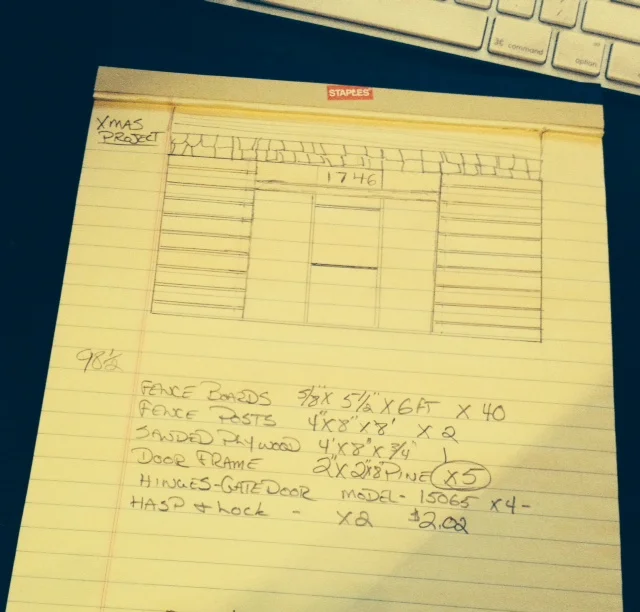 ⌘ command
option
STAPLES
XMAS
PROJECT
1746
98 1/2
FENCE BOARDS 5/8" X 5 1/2" X 6 FT X 40
FENCE POSTS 4" X 8" X 8' X 2
SANDED PLYWOOD 4' X 8" X 3/4"
DOOR FRAME 2" X 2" X 8' PINE X 5
HINGES-GATE DOOR MODEL - 15065 X 4 -
HASP & LOCK - X 2 $2.02